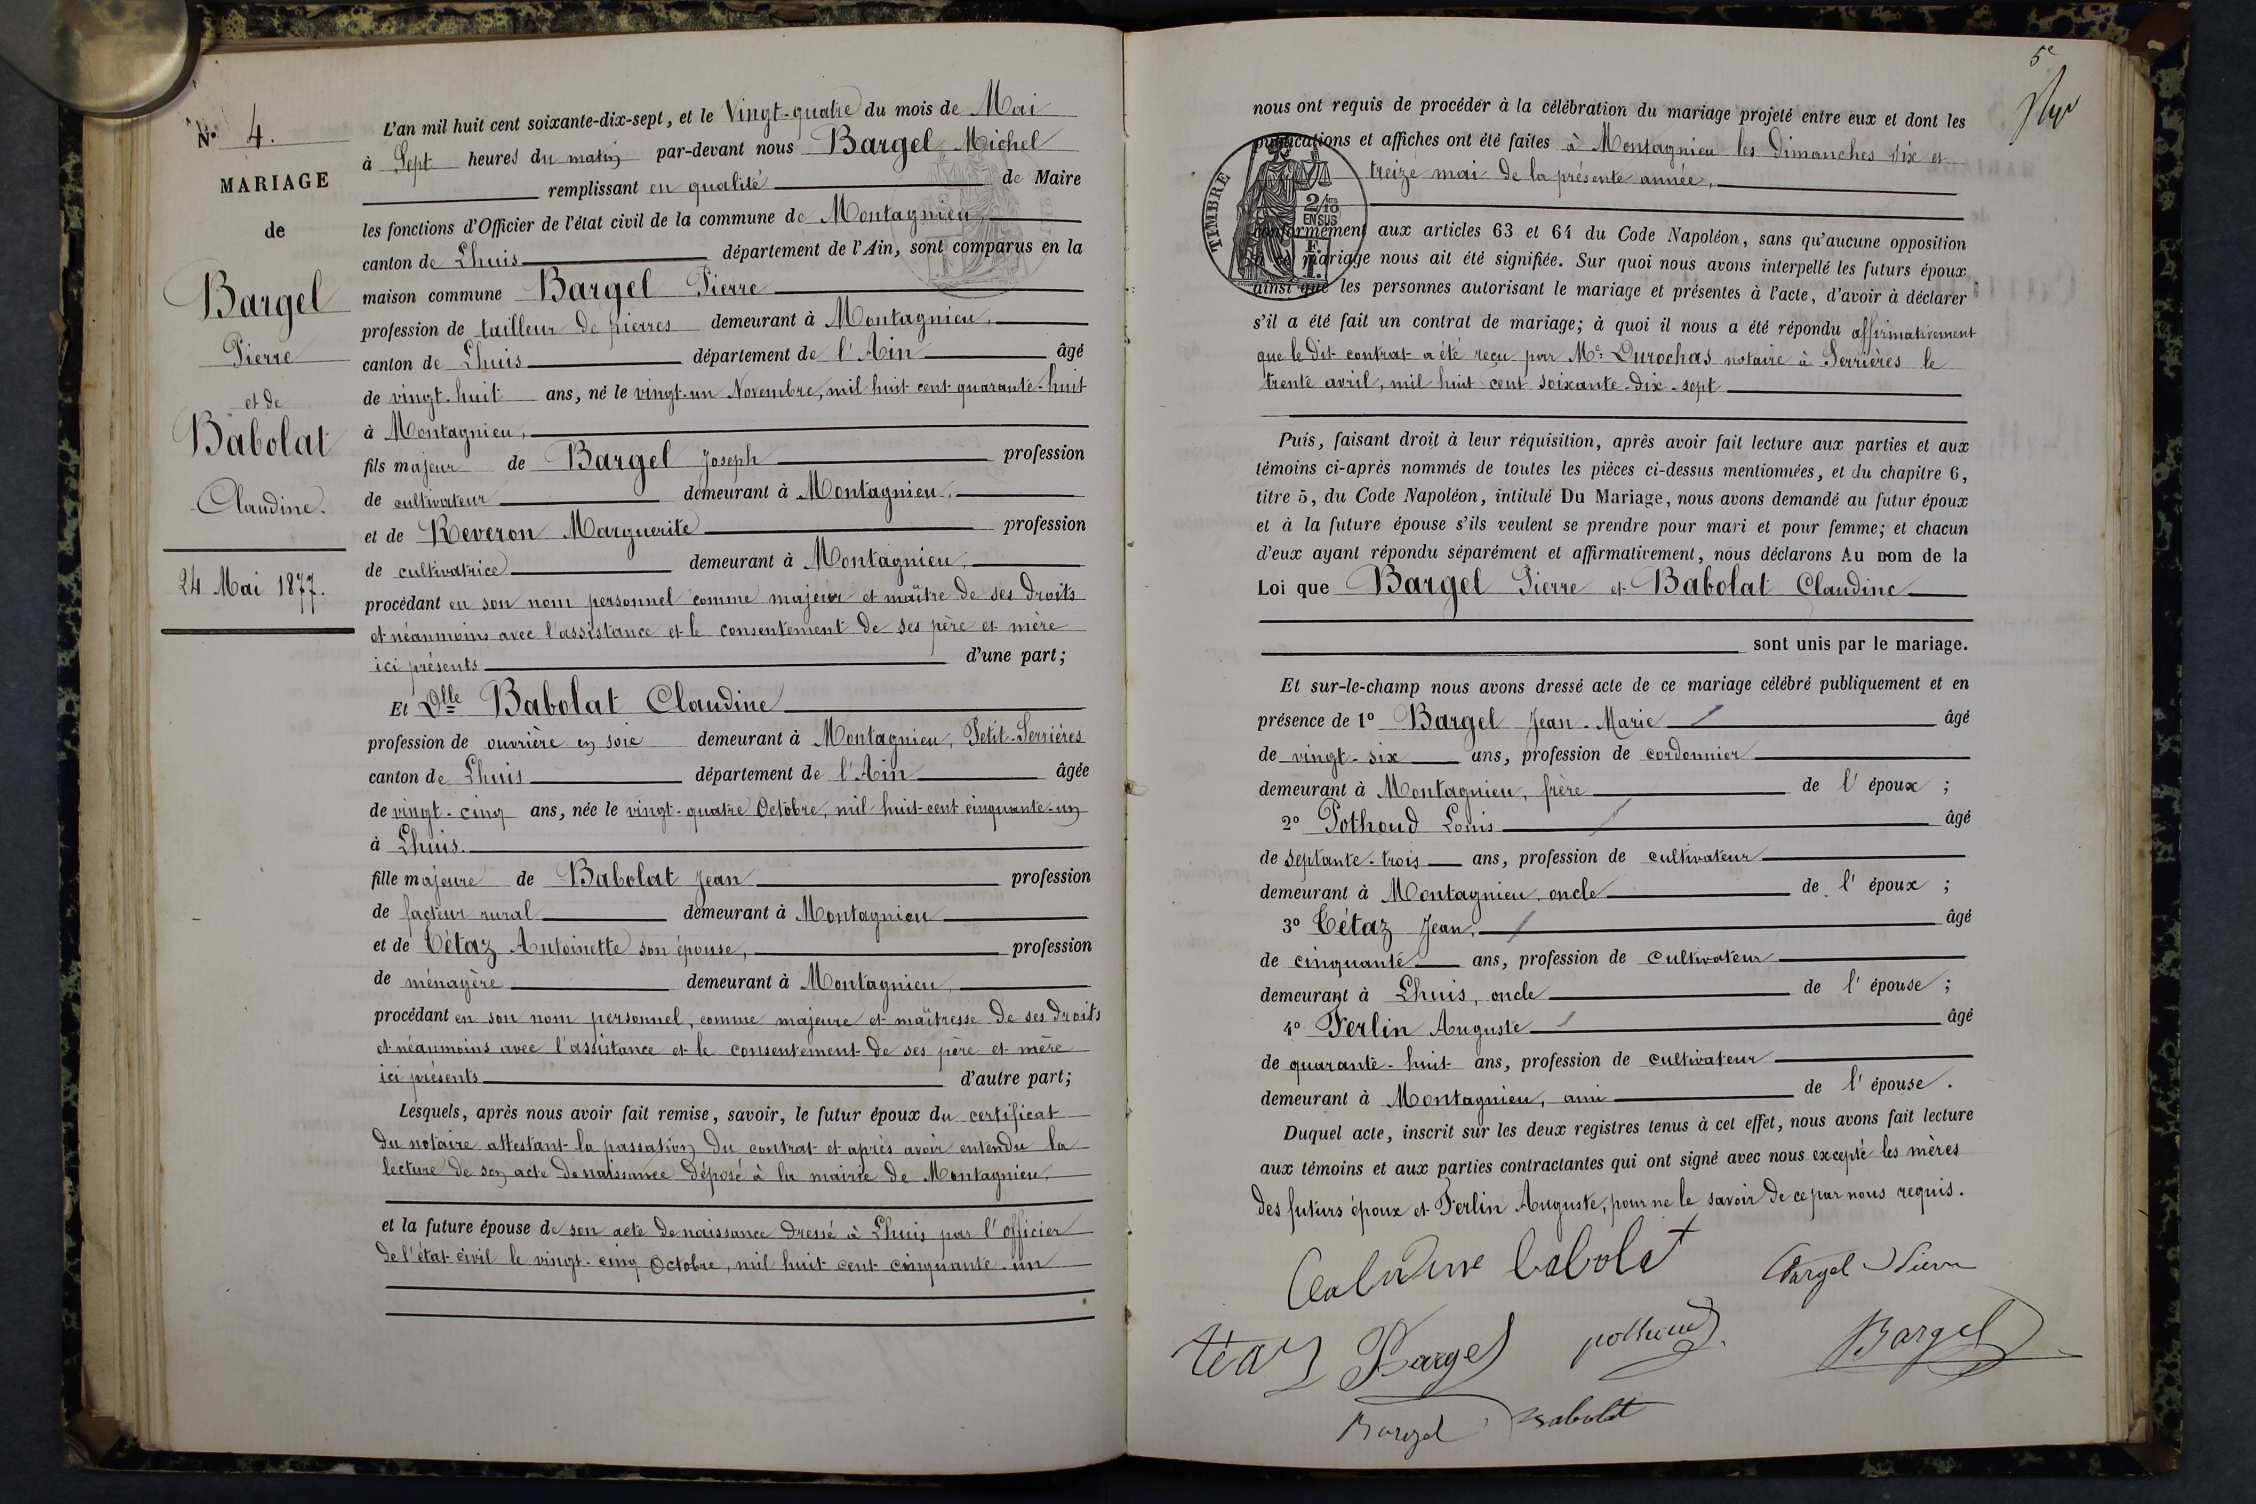 N° 4.
MARIAGE
de
Bargel
Pierre
et de
Babolat
Claudine.
24 Mai 1877.
L'an mil huit cent soixante-dix-sept, et le Vingt-quatre du mois de Mai
à Sept heures du matin par-devant nous Bargel Michel
remplissant en qualité de Maire
les fonctions d'Officier de l'état civil de la commune de Montagnieu,
canton de Lhuis département de l'Ain, sont comparus en la
maison commune Bargel Pierre
profession de tailleur de pierres demeurant à Montagnieu,
canton de Lhuis département de l'Ain âgé
de vingt-huit ans, né le vingt-un Novembre, mil huit cent quarante-huit
à Montagnieu,
fils majeur de Bargel Joseph profession
de cultivateur demeurant à Montagnieu,
et de Reveron Marguerite profession
de cultivatrice demeurant à Montagnieu,
procédant en son nom personnel comme majeur et maître de ses droits
et néanmoins avec l'assistance et le consentement de ses père et mère
ici présents d'une part;
Et Dlle Babolat Claudine
profession de ouvrière en soie demeurant à Montagnieu, Petit-Serrières
canton de Lhuis département de l'Ain âgée
de vingt-cinq ans, née le vingt-quatre Octobre, mil huit-cent cinquante-un
à Lhuis.
fille majeure de Babolat Jean profession
de facteur rural demeurant à Montagnieu
et de Tétaz Antoinette son épouse, profession
de ménagère demeurant à Montagnieu,
procédant en son nom personnel, comme majeure et maîtresse de ses droits
et néanmoins avec l'assistance et le consentement de ses père et mère
ici présents d'autre part;
Lesquels, après nous avoir fait remise, savoir, le futur époux du certificat
du notaire attestant la passation du contrat et après avoir entendu la
lecture de son acte de naissance déposé à la mairie de Montagnieu,
et la future épouse de son acte de naissance dressé à Lhuis par l'officier
de l'état civil le vingt-cinq Octobre, mil huit cent cinquante-un
5e
nous ont requis de procéder à la célébration du mariage projeté entre eux et dont les
publications et affiches ont été faites à Montagnieu les dimanches six et
treize mai de la présente année,
TIMBRE
2/10
EN SUS
conformément aux articles 63 et 64 du Code Napoléon, sans qu'aucune opposition
à ce mariage nous ait été signifiée. Sur quoi nous avons interpellé les futurs époux
ainsi que les personnes autorisant le mariage et présentes à l'acte, d'avoir à déclarer
s'il a été fait un contrat de mariage; à quoi il nous a été répondu affirmativement
que le dit contrat a été reçu par Me Durochas notaire à Serrières le
trente avril, mil huit cent soixante-dix-sept
Puis, faisant droit à leur réquisition, après avoir fait lecture aux parties et aux
témoins ci-après nommés de toutes les pièces ci-dessus mentionnées, et du chapitre 6,
titre 5, du Code Napoléon, intitulé Du Mariage, nous avons demandé au futur époux
et à la future épouse s'ils veulent se prendre pour mari et pour femme; et chacun
d'eux ayant répondu séparément et affirmativement, nous déclarons Au nom de la
Loi que Bargel Pierre et Babolat Claudine
sont unis par le mariage.
Et sur-le-champ nous avons dressé acte de ce mariage célébré publiquement et en
présence de 1° Bargel Jean-Marie âgé
de vingt-six ans, profession de cordonnier
demeurant à Montagnieu, frère de l'époux;
2° Pothoud Louis âgé
de septante-trois ans, profession de cultivateur
demeurant à Montagnieu, oncle de l'époux;
3° Tétaz Jean, âgé
de cinquante ans, profession de cultivateur
demeurant à Lhuis, oncle de l'épouse;
4° Ferlin Auguste âgé
de quarante-huit ans, profession de cultivateur
demeurant à Montagnieu, ami de l'épouse.
Duquel acte, inscrit sur les deux registres tenus à cet effet, nous avons fait lecture
aux témoins et aux parties contractantes qui ont signé avec nous excepté les mères
des futurs époux et Ferlin Auguste, pour ne le savoir de ce par nous requis.
babolat Bargel Pierre
Bargel pothoud Bargel
Bargel Babolat